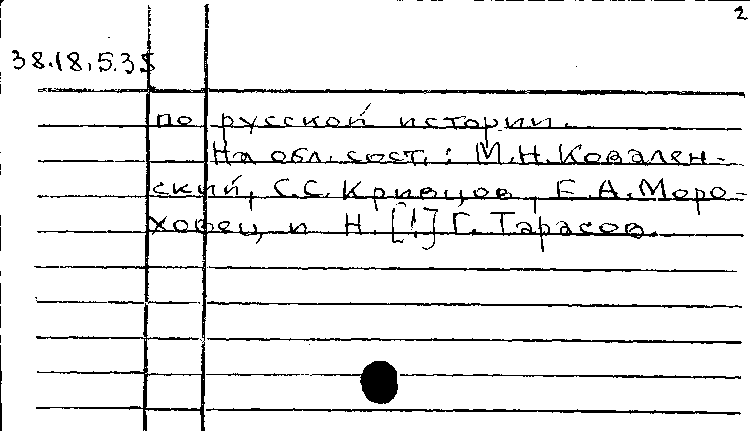 2
38.18.5.35
по русской истории.
На обл. сост.: М.Н. Ковален-
ский, С.С. Кривцов, Е.А. Моро-
ховец и Н. [!] Г. Тарасов.